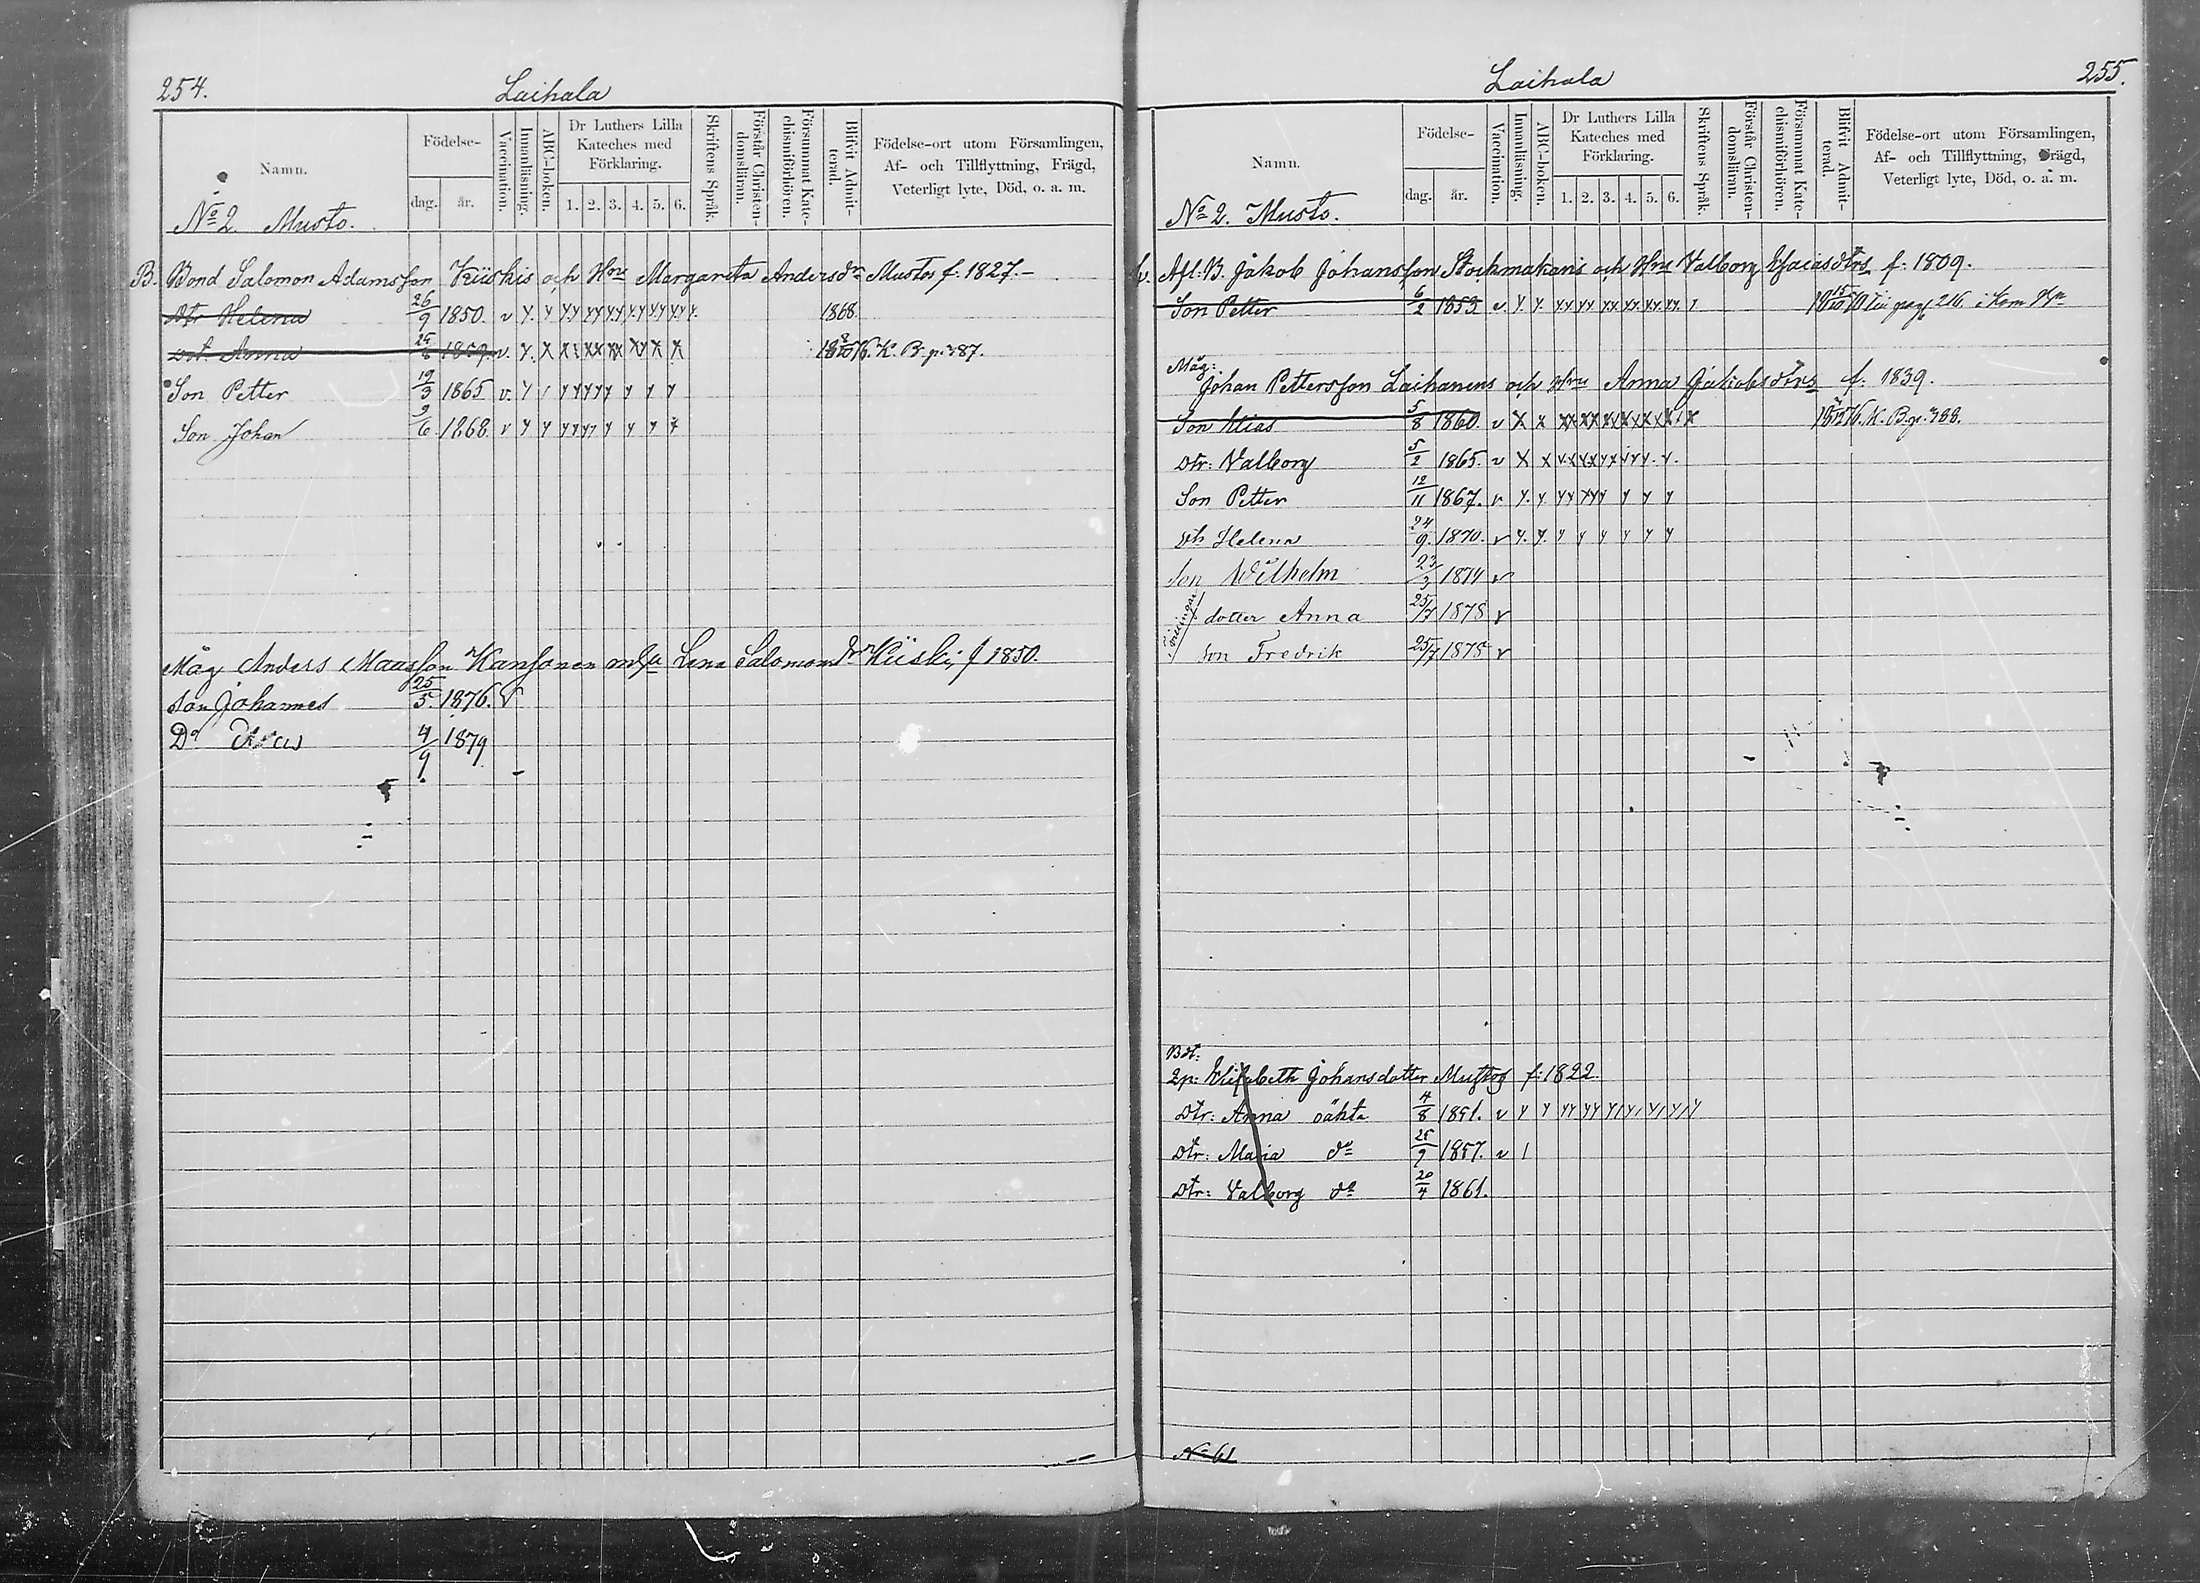 254.
Laihala
Namn.
Födelse-
dag.
år.
Vaccination.
Innanläsning.
ABC-boken.
Dr Luthers Lilla Kateches med Förklaring.
1. 2. 3. 4. 5. 6.
Skriftens Språk.
Förstår Christendomsläran.
Försummat Katechismiförhören.
Blifvit Admitterad.
Födelse-ort utom Församlingen,
Af- och Tillflyttning, Frägd,
Veterligt lyte, Död, o. a. m.
No 2 Musto.
B. Bond Salomon Adamsson Kiiskis och Hru Margareta Andersdr Mustos f. 1827.-
Dtr Helena 26/9 1850. v 1868.
Dtr Anna 1859. v. K. B. p. 387.
Son Petter 19/3 1865 v.
Son Johan 9/6 1868 v
Måg Anders Maasson Kansanen m hu Lena Salomonsdr Kiiski, f 1850.
Son Johannes 25/5. 1876. v
Do 4/9. 1879
255.
Laihala
Namn.
Födelse-
dag.
år.
Vaccination.
Innanläsning.
ABC-boken.
Dr Luthers Lilla Kateches med Förklaring.
1. 2. 3. 4. 5. 6.
Skriftens Språk.
Förstår Christendomsläran.
Försummat Katechismiförhören.
Blifvit Admitterad.
Födelse-ort utom Församlingen,
Af- och Tillflyttning, Frägd,
Veterligt lyte, Död, o. a. m.
No 2. Musto.
Afl. B. Jakob Johansson Stockmakaris och Hru Valborg Esaiasdtrs f. 1809.
Son Petter 6/2 1853 v. pag 216
Måg:
Johan Pettersson Laihanens och Hru Anna Jakobsdtrs f. 1839.
Son Elias 5/8 1860. v K. B. p. 388.
Dtr: Valborg 5/2 1865. v
Son Petter 12/11 1867. v
Dtr Helena 24/9. 1870. v
Son Wilhelm 23/3 1874 v
Tvillingar
dotter Anna 25/7 1878 v
Son Fredrik 25/7 1878 v
Elisabeth Johansdotter Mustos f: 1822.
Dtr: Anna oäkta 4/8 1851. v
Dtr: Maria do 25/9 1857. v
Dtr: Valborg do 20/4 1861.
No 61